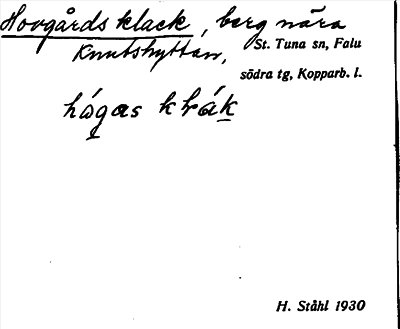 Hovgårds klack, berg nära
Knutshyttan,
St. Tuna sn, Falu
södra tg, Kopparb. l.
hágas khrák
H. Ståhl 1930